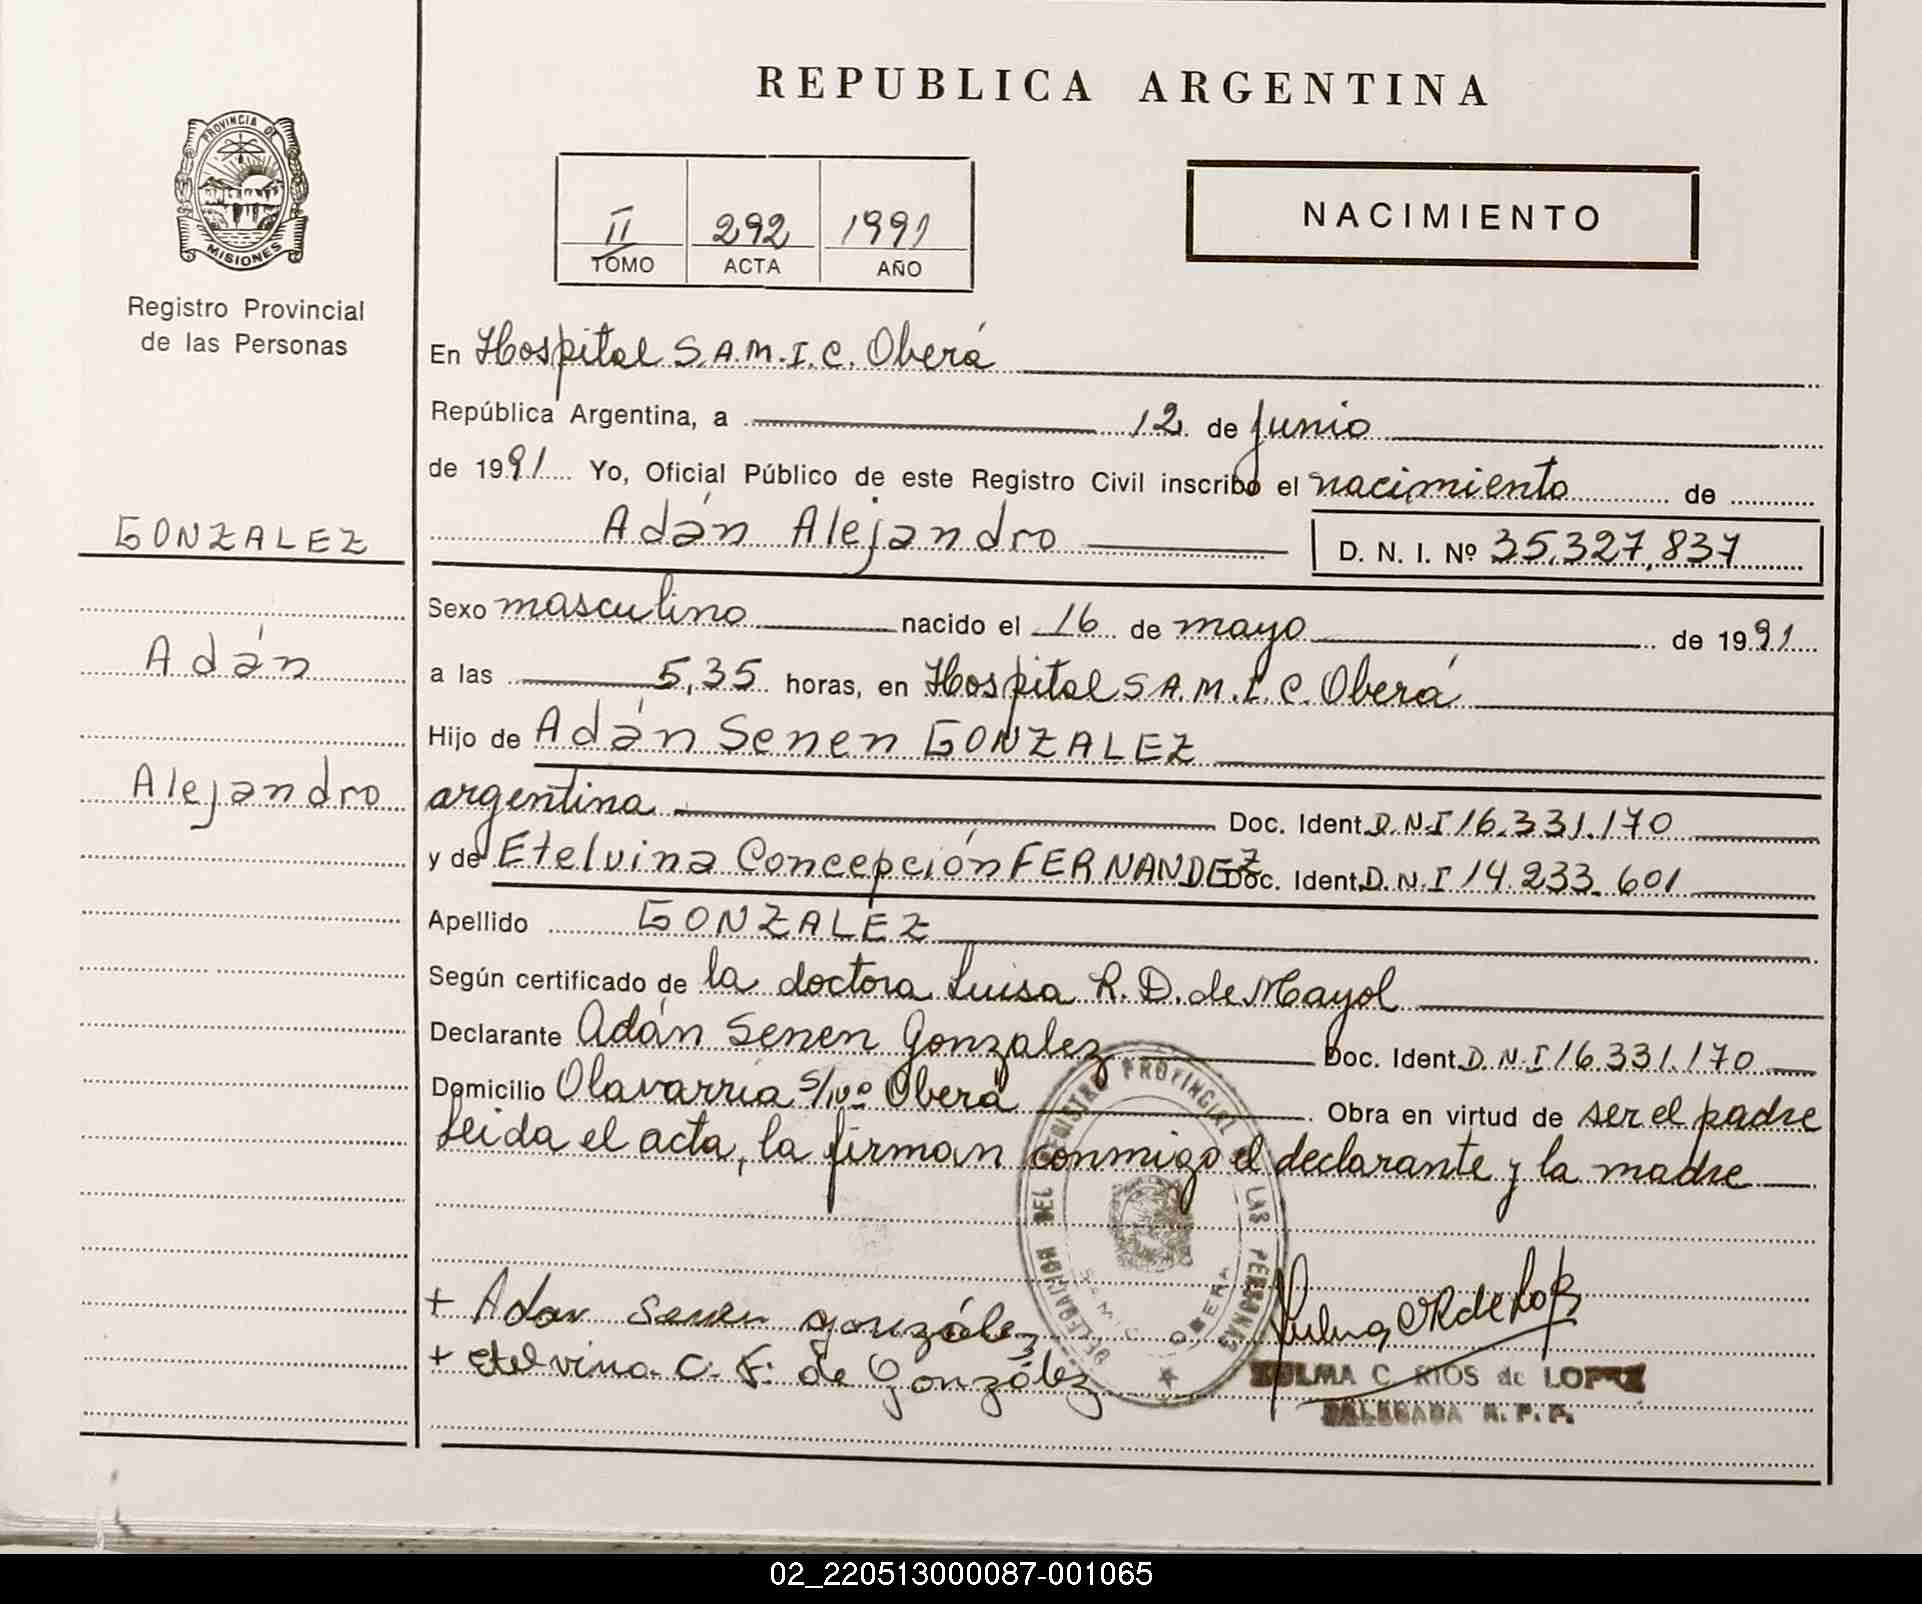 REPUBLICA ARGENTINA
PROVINCIA DE
MISIONES
Registro Provincial
de las Personas
II 292 1991
TOMO ACTA AÑO
NACIMIENTO
GONZALEZ
Adán
Alejandro
En Hospital S.A.M.I.C. Oberá
República Argentina, a 12 de Junio
de 1991 Yo, Oficial Público de este Registro Civil inscribo el nacimiento de
Adán Alejandro D. N. I. Nº 35,327,837
Sexo masculino nacido el 16 de mayo de 1991
a las 5,35 horas, en Hospital S.A.M.I.C. Oberá
Hijo de Adán Senen GONZALEZ
argentina Doc. Ident. D.N.I 16.331.170
y de Etelvina Concepción FERNANDEZ Doc. Ident. D.N.I 14.233.601
Apellido GONZALEZ
Según certificado de la doctora Luisa R. D. de Mayol
Declarante Adán Senen Gonzalez Doc. Ident. D.N.I 16.331.170
Domicilio Olavarria S/Nº Oberá. Obra en virtud de ser el padre
Leida el acta, la firman conmigo el declarante y la madre
DELEGACION DEL REGISTRO PROVINCIAL LAS PERSONAS
SAMIC OBERA
+ Adan Senen gonzález
+ Etelvina C. F. de González
ZULMA C. RIOS de LOPEZ
DELEGADA R. P. P.
02_220513000087-001065